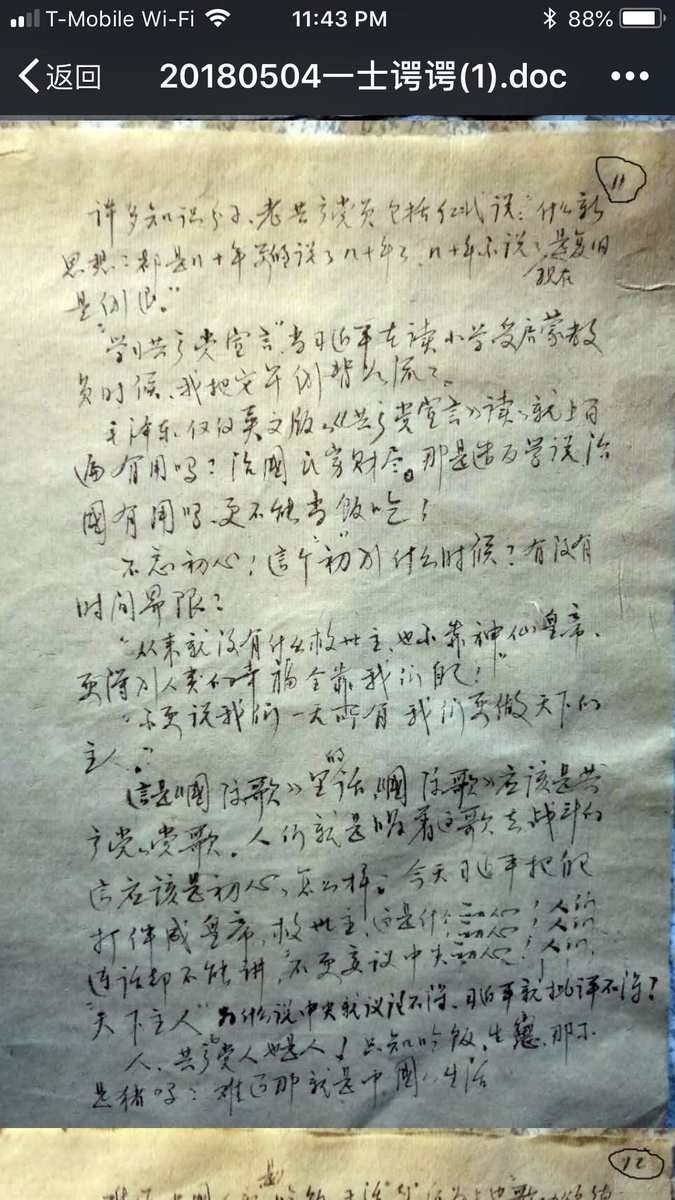 T-Mobile Wi-Fi 11:43 PM 88%
返回 20180504一士谔谔(1).doc
11
许多知识分子、老共产党员包括红二代说："什么新
思想？都是几十年前说了几十年了，几十年不说了，是复旧
现在
是倒退。"
"学习共产党宣言"，当习近平在读小学受启蒙教
育时候，我把它早倒背如流了。
毛泽东仅仅英文版《共产党宣言》读就上百
遍有用吗？治国民穷财尽。那是造反学说治
國有用吗，更不能当饭吃！
不忘初心！这个"初"到什么时候？有没有
时间界限？
"从来就没有什么救世主，也不靠神仙皇帝、
要得到人类的幸福全靠我们自己！"
"不要说我们一无所有 我们要做天下的
主人。"
的
這是《國际歌》里话，《國际歌》应该是共
产党党歌。人们就是唱着这歌去战斗的
這应该是初心，怎么样？今天习近平把自己
打伴成皇帝，救世主，这是什么初心？人们
连话却不能讲，"不要妄议中央"初心？人们
初心？人们
"天下主人"为什么说中央就议论不得、习近平就批评不得？
人、共产党人也是人！只知吃饭、生 、那不
是猪吗？难道那就是中國人生活
12